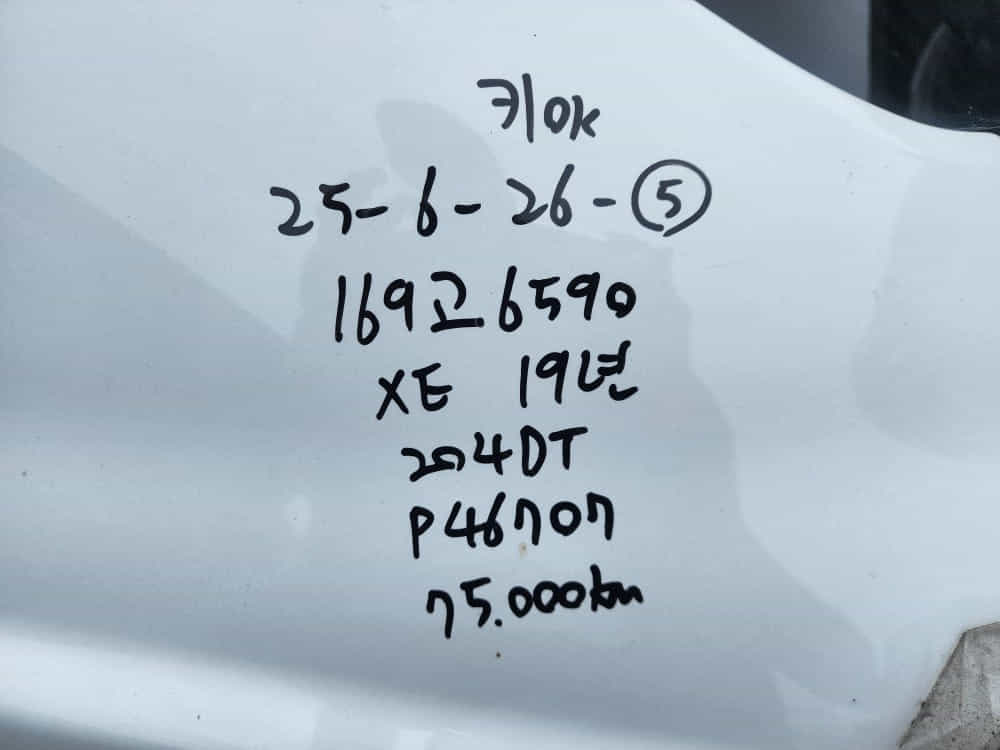 키OK
25-6-26-⑤
169고6590
XE 19년
204DT
P46707
75.000km